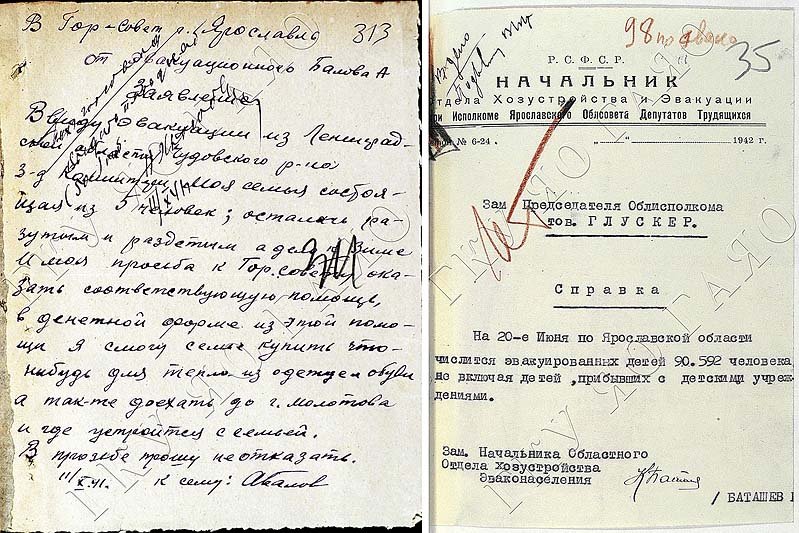 В Гор-совет г. Ярославль 313
от эвакуационного Балова А
Заявление
Ввиду эвакуации из Ленинград-
ской области Чудовского р-на
з-д Коминтерн. Моя семья состоя-
щая из 5 человек; остались ра-
зутыми и раздетыми а дело к зиме
И моя просьба к Гор.совету ока-
зать соответствующую помощь,
в денежной форме из этой помо-
щи я смогу семье купить что-
нибудь для тепла из одежды и обуви
а так-же доехать до г. Молотова
и где устроится с семьей.
В прозбе прошу неотказать.
11/X.41. к сему: АБалов
98 35
Р.С.Ф.С.Р.
НАЧАЛЬНИК
отдела Хозустройства и Эвакуации
при Исполкоме Ярославского Облсовета Депутатов Трудящихся
№ 6-24. "—" 1942 г.
Зам Председателя Облисполкома
тов. ГЛУСКЕР.
Справка
На 20-е Июня по Ярославской области
числится эвакуированных детей 90.592 человека
не включая детей ,прибывших с детскими учреж-
дениями.
Зам. Начальника Областного
Отдела хозустройства
Эваконаселения
/ БАТАШЕВ
ГКУ ЯО ГАЯО